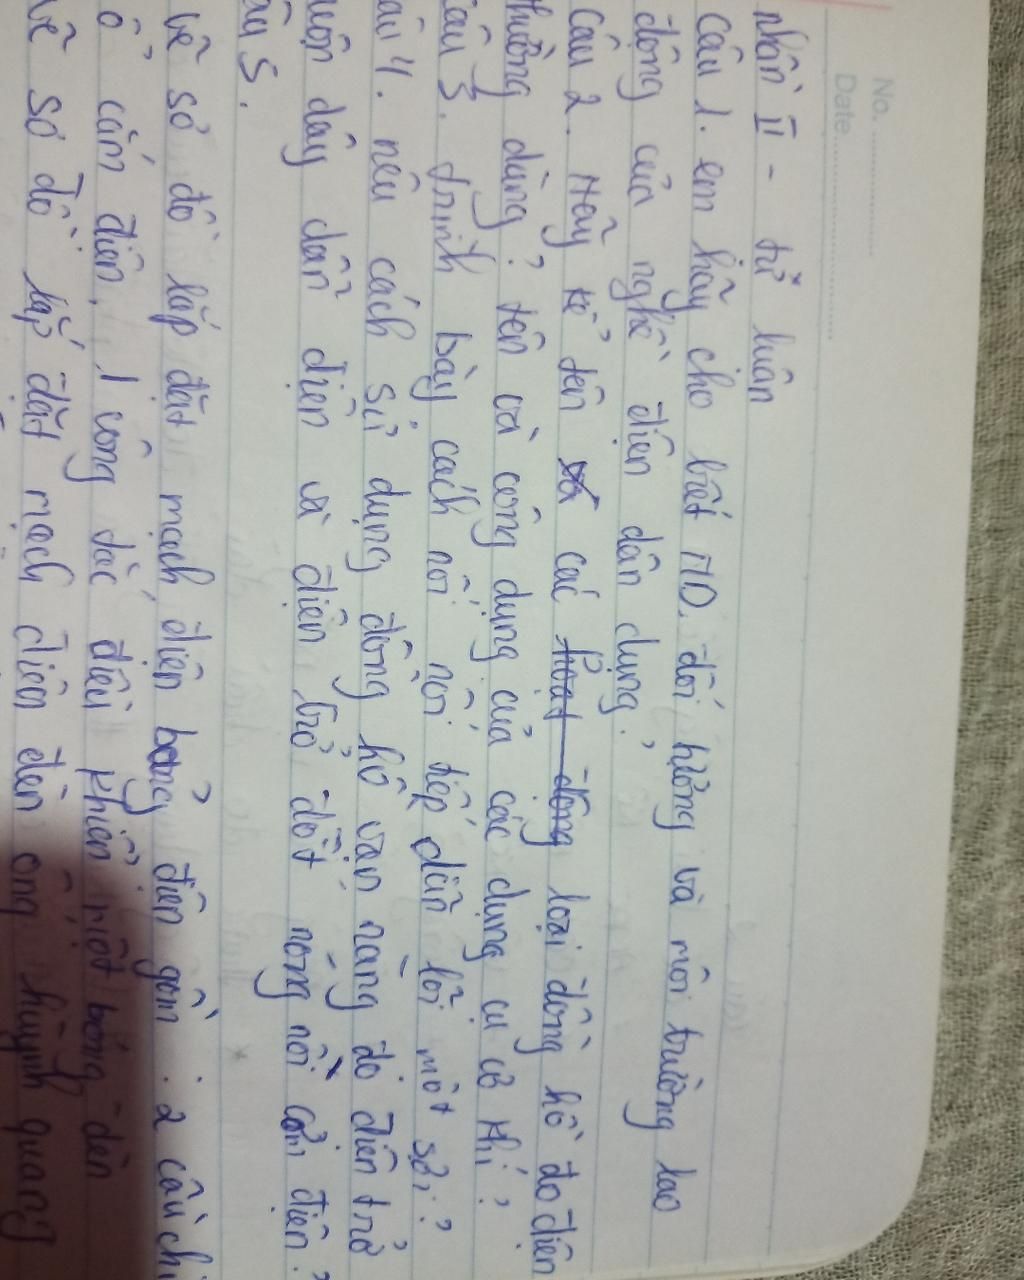 No. ....................
Date.............................
phần II - tử luân
Câu 1. em hãy cho biết ND. đối tượng và môi trường lao
động của nghề điện dân dụng?
Câu 2. Hãy kể tên các hoạt động loại đồng hồ đo điện
thường dùng? tên và công dụng của các dụng cụ cơ khí?
câu 3. trình bày cách nối nối tiếp dẫn lõi một sợi?
âu 4. nêu cách sử dụng đồng hồ vạn năng đo điện trở
uộn dây dẫn điện và điện trở đốt nóng nồi cơm điện?
âu 5.
vẽ sơ đồ lắp đặt mạch điện bảng điện gồm. 2 cầu chì
ổ cắm điện, 1 công tắc điều khiển một bóng đèn
vẽ sơ đồ lắp đặt mạch điện đèn ống huỳnh quang